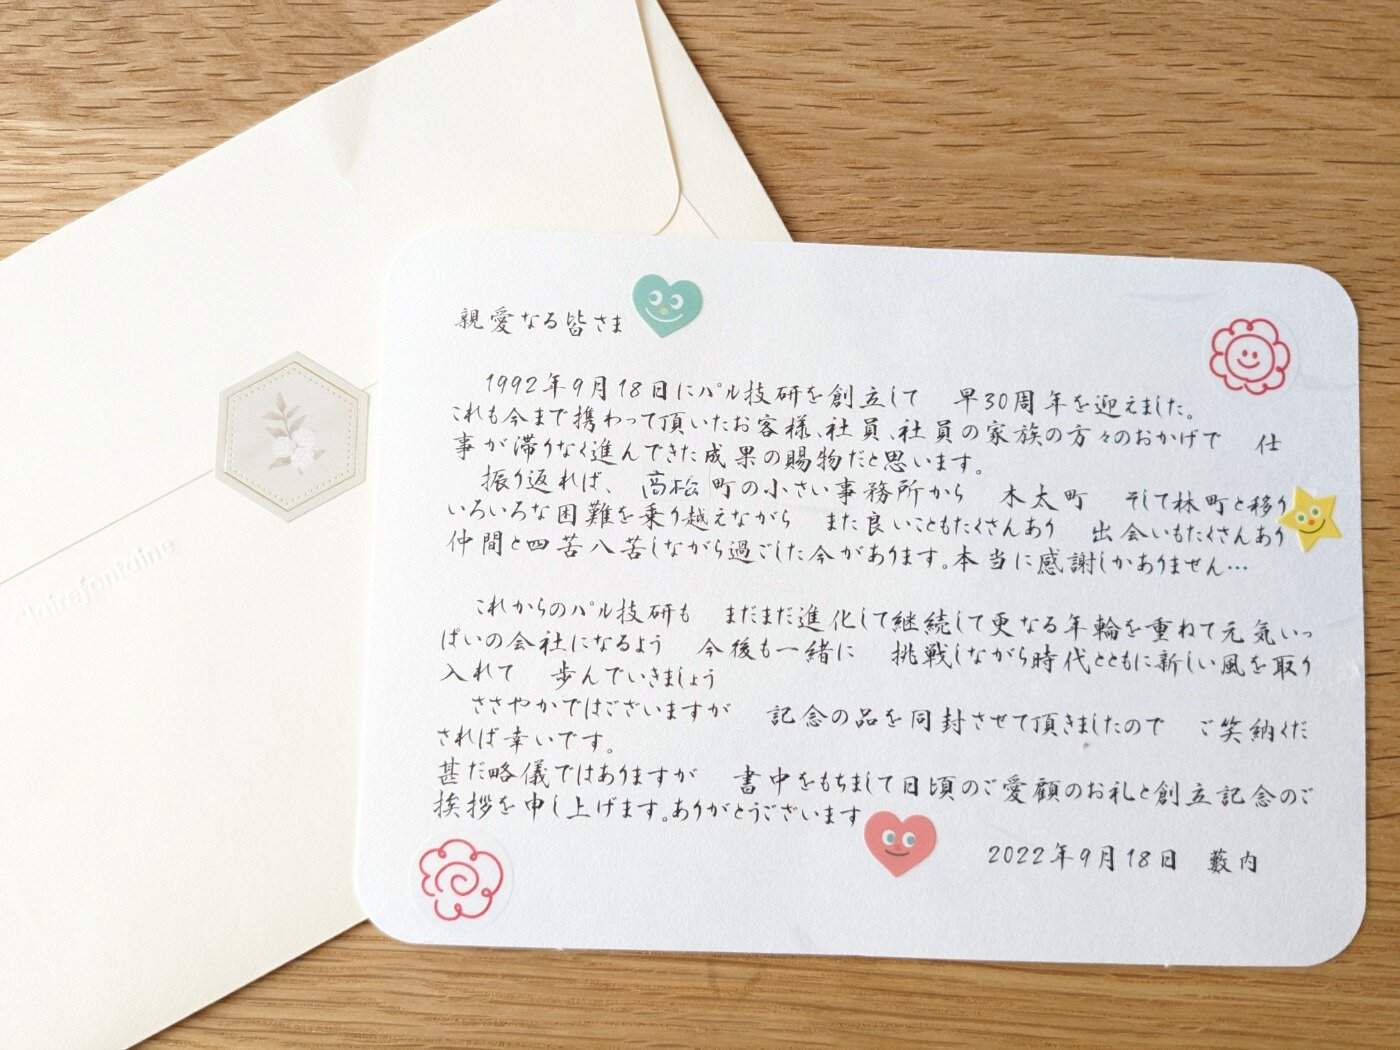 clairefontaine
親愛なる皆さま
1992年9月18日にパル技研を創立して　早30周年を迎えました。
これも今まで携わって頂いたお客様、社員、社員の家族の方々のおかげで　仕
事が滞りなく進んできた成果の賜物だと思います。
振り返れば、高松町の小さい事務所から　木太町　そして林町と移り
いろいろな困難を乗り越えながら　また良いこともたくさんあり　出会いもたくさんあり
仲間と四苦八苦しながら過ごした今があります。本当に感謝しかありません…
これからのパル技研も　まだまだ進化して継続して更なる年輪を重ねて元気いっ
ぱいの会社になるよう　今後も一緒に　挑戦しながら時代とともに新しい風を取り
入れて　歩んでいきましょう
ささやかではございますが　記念の品を同封させて頂きましたので　ご笑納くだ
されば幸いです。
甚だ略儀ではありますが　書中をもちまして日頃のご愛顧のお礼と創立記念のご
挨拶を申し上げます。ありがとうございます
2022年9月18日　藪内